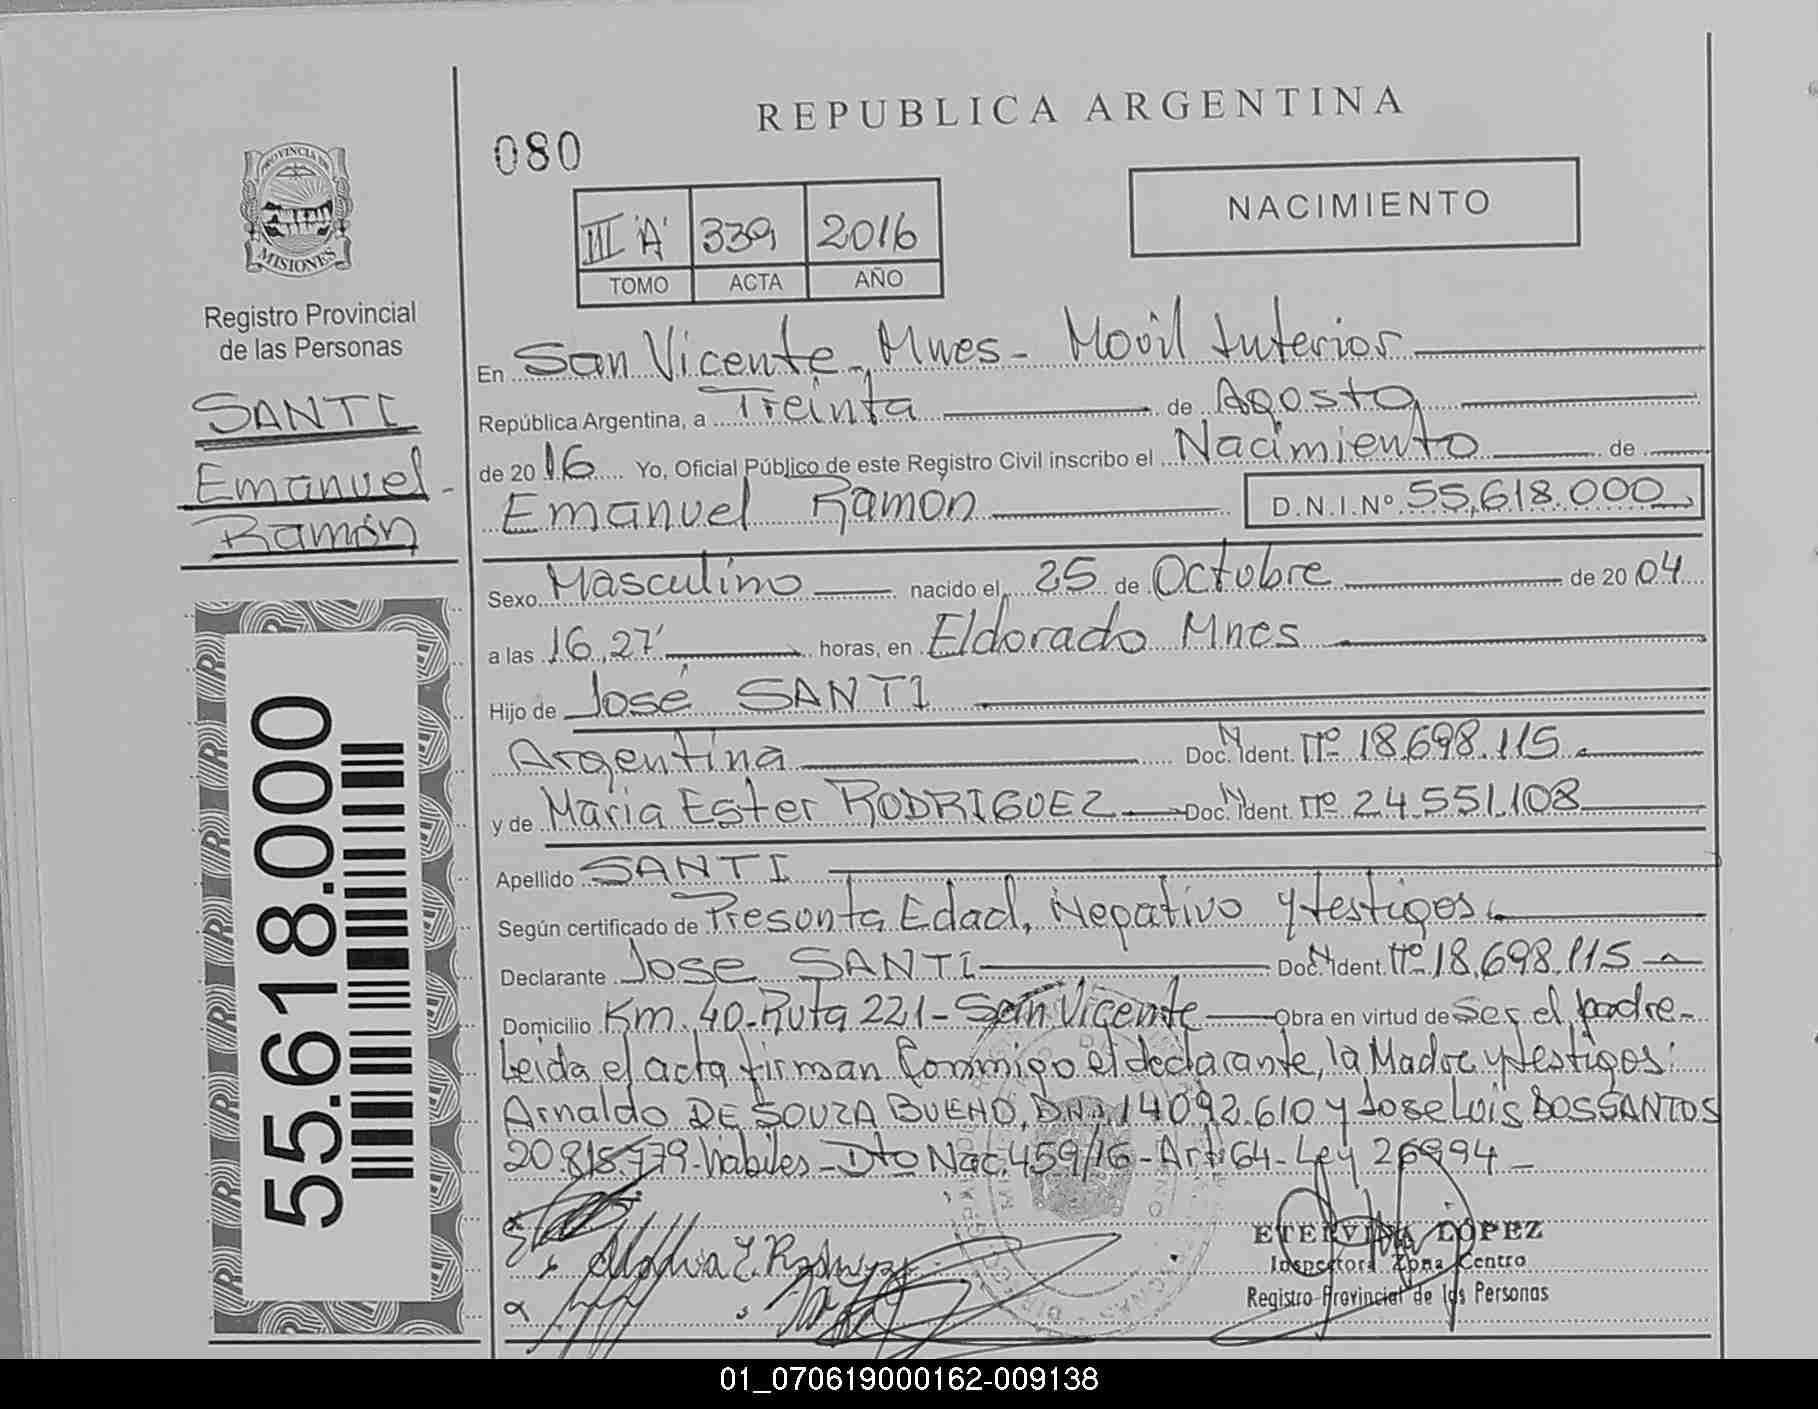 REPUBLICA ARGENTINA
080
NACIMIENTO
III "A" 339 2016
TOMO ACTA AÑO
PROVINCIA DE
MISIONES
Registro Provincial
de las Personas
SANTI
Emanuel-
Ramón
55.618.000
En San Vicente, Mnes- Movil Interior
República Argentina, a Treinta de Agosto
de 2016 Yo, Oficial Público de este Registro Civil inscribo el Nacimiento de
Emanuel Ramon D.N.I.Nº 55.618.000
Sexo Masculino nacido el 25 de Octubre de 2004
a las 16,27' horas, en Eldorado Mnes
Hijo de José SANTI
Argentina Doc. Ident. Nº 18.698.115
y de Maria Ester RODRIGUEZ Doc. Ident. Nº 24.551.108
Apellido SANTI
Según certificado de Presunta Edad, Negativo y testigos
Declarante Jose SANTI Doc. Ident. Nº 18.698.115
Domicilio Km. 40-Ruta 221- San Vicente Obra en virtud de Ser el padre-
Leida el acta firman Conmigo el declarante, la Madre y testigos:
Arnaldo DE SOUZA BUENO, DNI 14092.610 y Jose Luis DOSSANTOS
20.815.779-habiles-Dto Nac. 459/16-Art 64-Ley 26994-
ETELVINA LOPEZ
Inspectora Zona Centro
Registro Provincial de las Personas
01_070619000162-009138